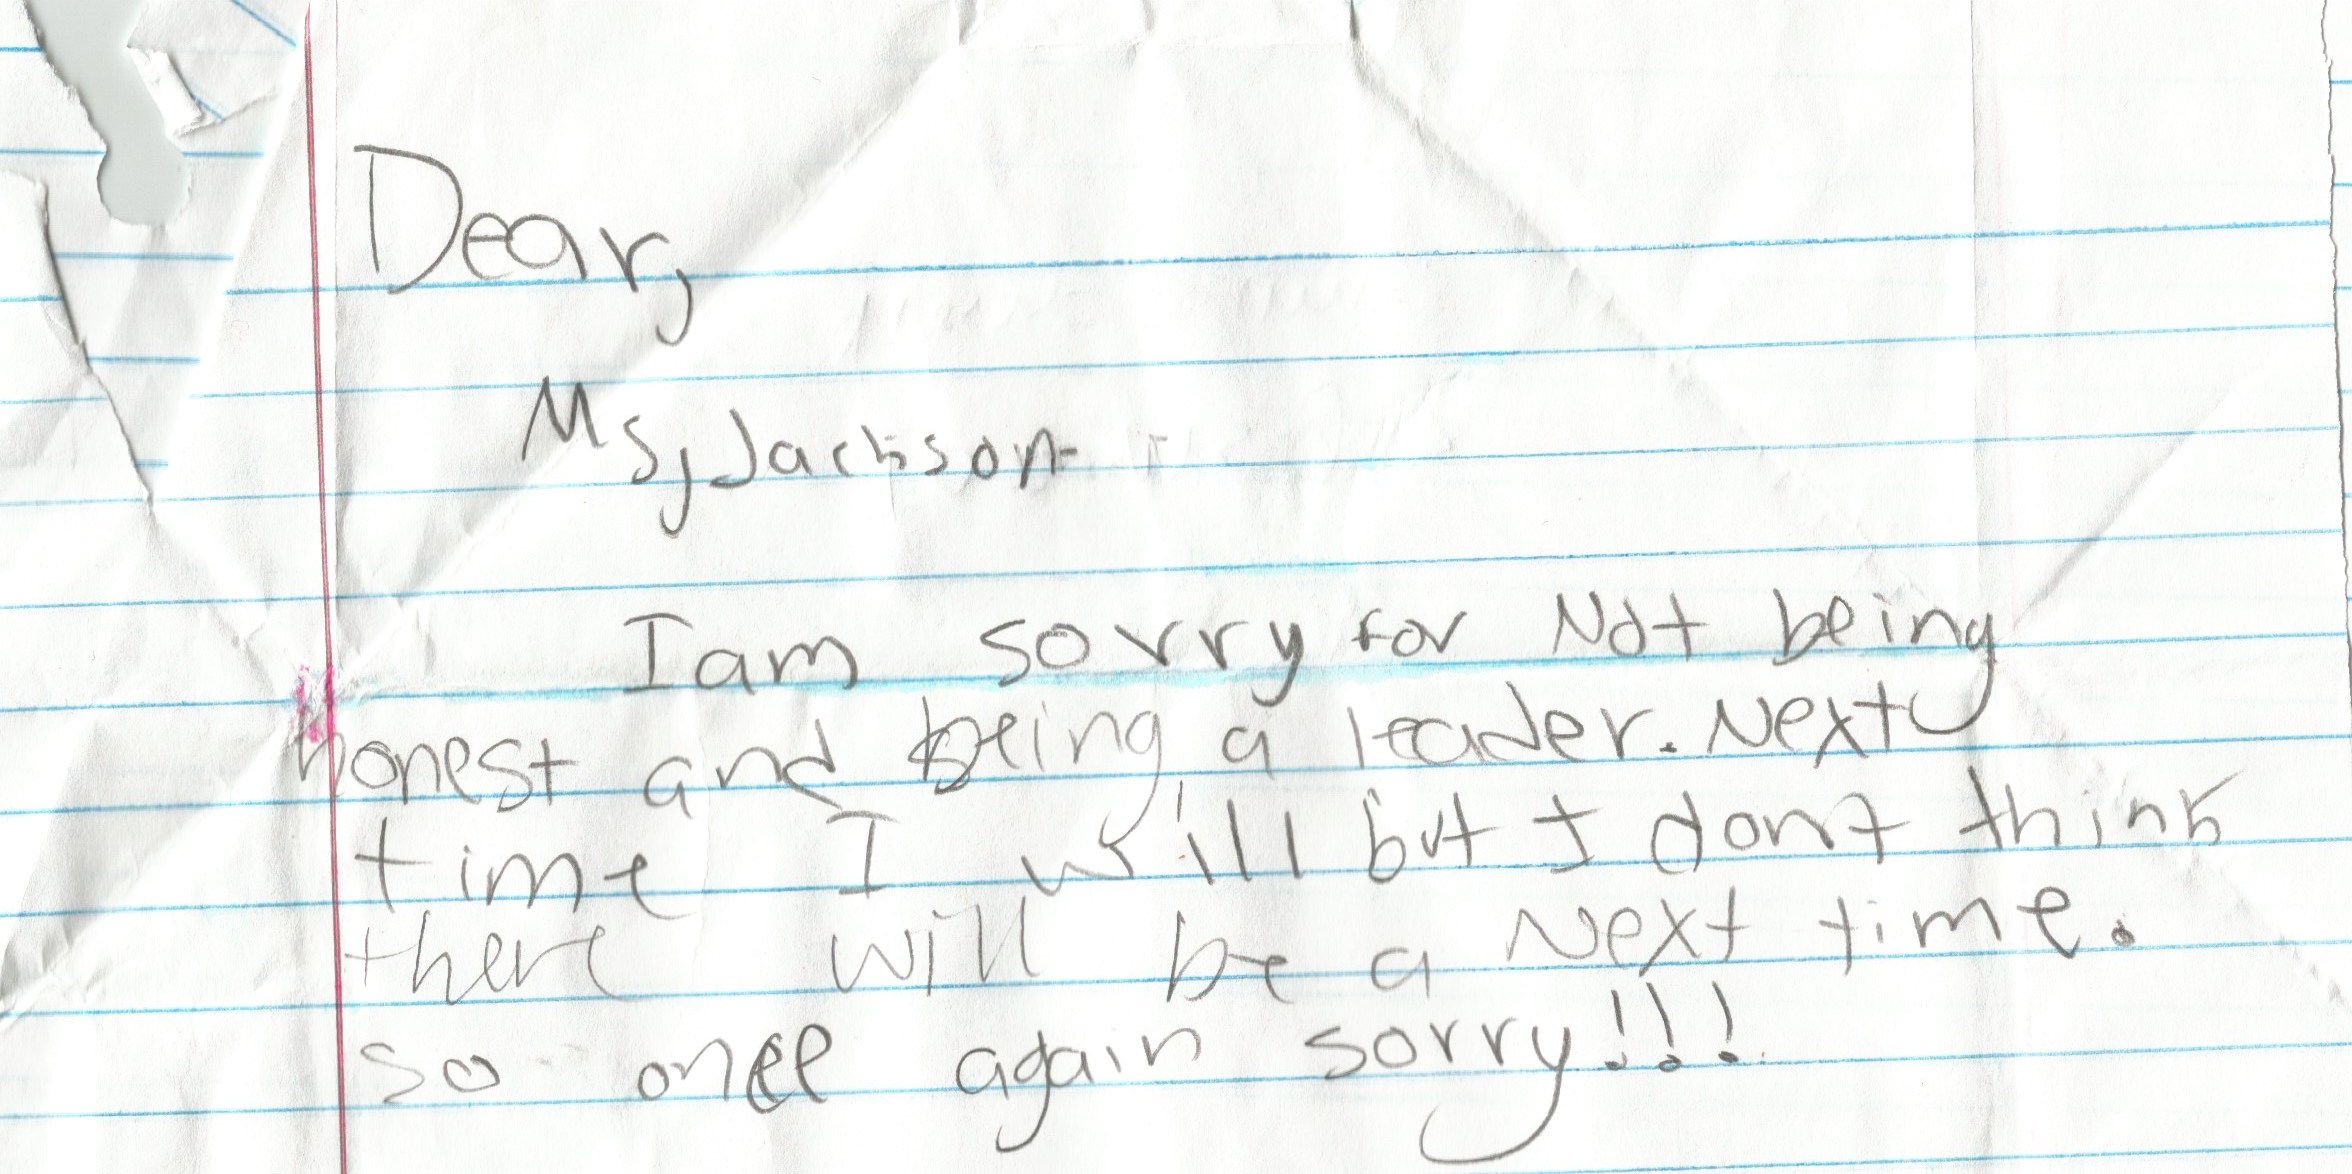 Dear,
Ms, Jackson
I am sorry for Not being
honest and being a leader. Next
time I will but I dont think
there will be a Next time.
so once again sorry!!!